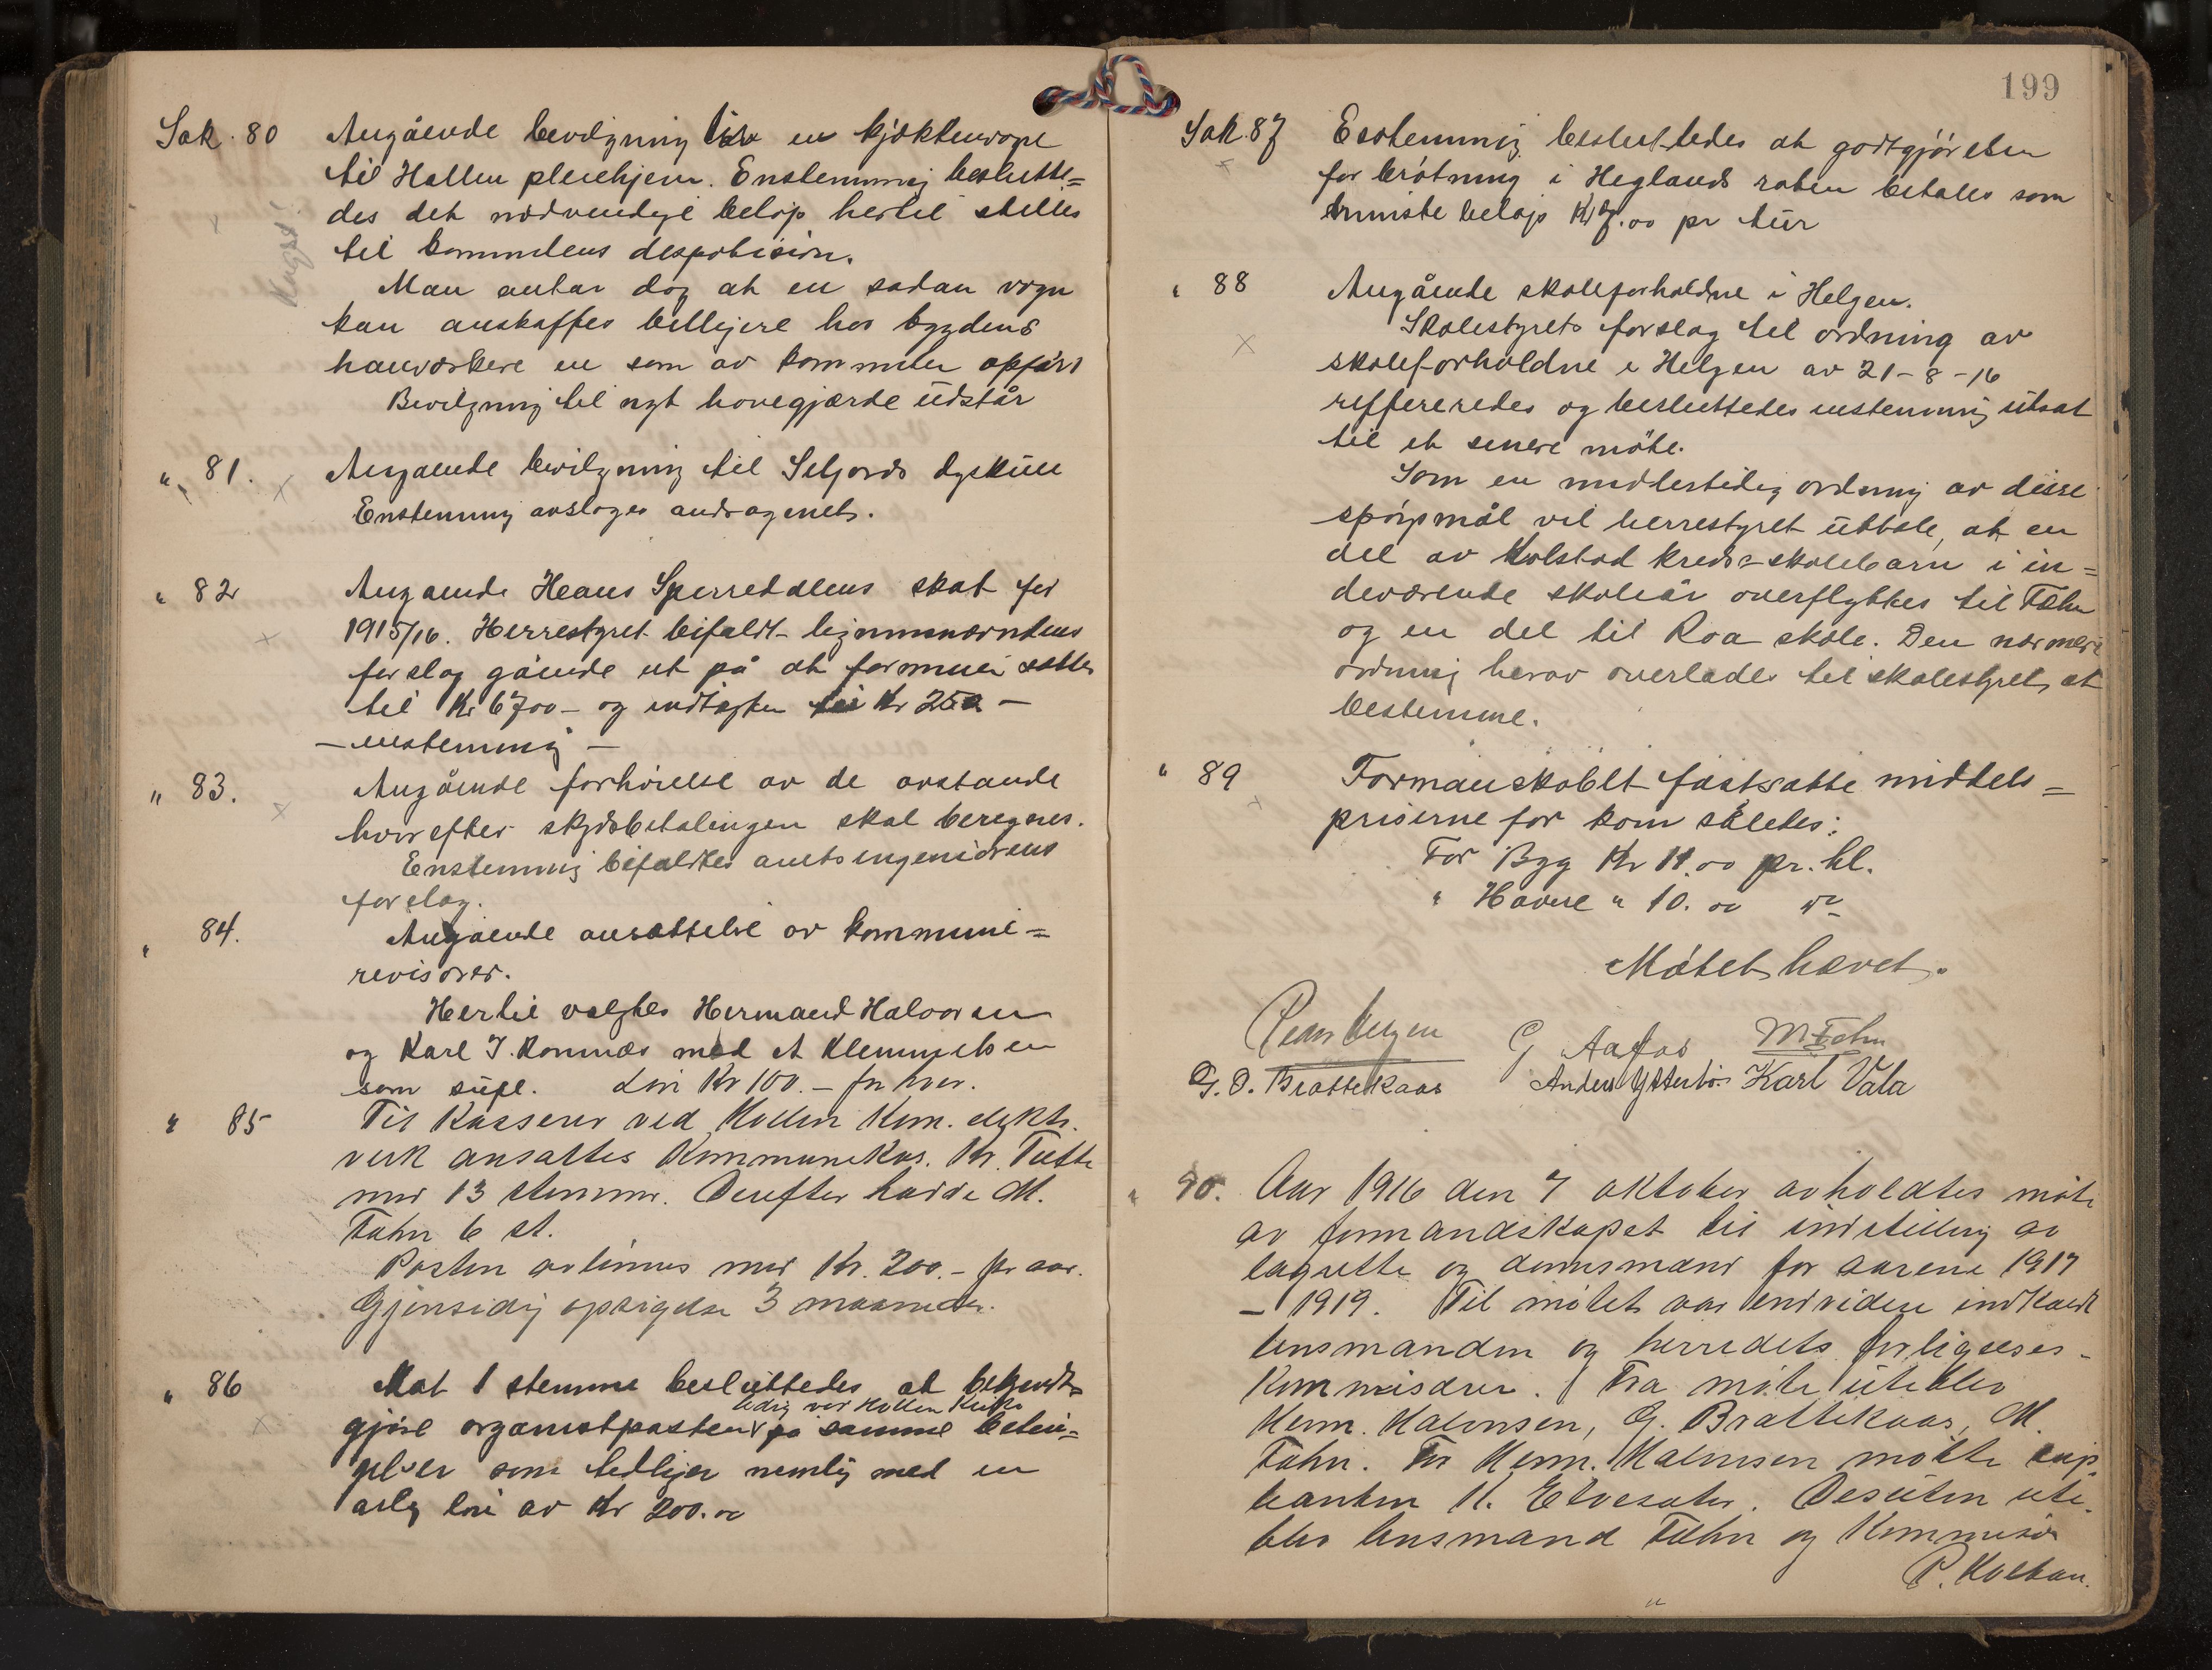 Sak. 80 Angående bevilgning til en kjøkkenvogn
til Hollen pleiehjem. Enstemmig beslutte=
des det nødvendige beløp hertil stilles
til komiteens desposision.
Man antar dog at en sådan vogn
kan anskaffes billigere hos bygdens
hanværkere en som av komiteen opført
Bevilgning til nyt havegjærde utstår
" 81. Angaaende bevilgning til Seljords dyrskue
Enstemmig avsloges andragenet.
" 82 Angaaende Hans Sperredalens skat for
1915/16. Herrestyret bifaldt ligningsnævndens
forslag gående ut på at formuen sættes
til Kr 6700 – og indtægten til Kr 250 –
– enstemmig –
" 83. Angående forhøielse av de avstande
hvorefter skydsbetalingen skal beregnes.
Enstemmig bifaldtes amtsingeniørens
forslag.
" 84. Angående ansættelse av kommune=
revisorer.
Hertil valgtes Hermand Halvorsen
og Karl J. Romnæs med A Klemmetsen
som supl. Løn Kr 100. – for hver.
" 85 Til Kasserer ved Hollen Kom. elektr.
verk ansattes Kommunekas. Kr. Tufte
med 13 stemmer. Derefter hadde M.
Fæhn 6 st.
Posten avlønnes med Kr. 200. – pr aar.
Gjensidig opsigelse 3 maaneder.
" 86 Mot 1 stemme besluttedes at bekjendt=
ledig ved Hollen Kirke
gjøre organistposten på samme betin=
gelser som tidligere nemlig med en
årlig løn av Kr 200.00
199
Sak. 87 Enstemmig besluttedes at godtgjørelsen
for brøtning i Heglands roten betales som
mindste beløp Kr 7.00 pr tur
" 88 Angående skoleforholdne i Helgen.
Skolestyrets forslag til ordning av
skoleforholdne i Helgen av 21-8-16
reffereredes og besluttedes enstemmig utsat
til et senere møte.
Som en midlertidig ordning av disse
spørgsmål vil herrestyret uttale, at en
del av Kolstad kreds=skolebarn i in=
deværende skoleår overflyttes til Fæhn
og en del til Roa skole. Den nærmere
ordning herav overlades til skolestyret at
bestemme.
" 89 Formanskabet fastsatte middels=
priserne for korn således:
For Byg Kr 11.00 pr. hl.
" Havre " 10.00 do
Møtet hævet.
G Aafos M Fæhn
G. O. Brattekaas Anders Ytterbø Karl Vala
" 90. Aar 1916 den 7 oktober avholdtes møte
av formandskapet til indstilling av
lagrette og domsmænd for aarene 1917
– 1919. Til møtet var endvidere indkaldt
lensmanden og herredets forligelses-
kommisærer. Fra møte uteblev
Herm. Halvorsen, G. Brattekaas, M.
Fæhn. For Herm. Halvorsen møtte sup-
leanten K. Elvesæter. Desuten ute-
blev lensmand Fæhn og Kommisær
P. Kolstan.